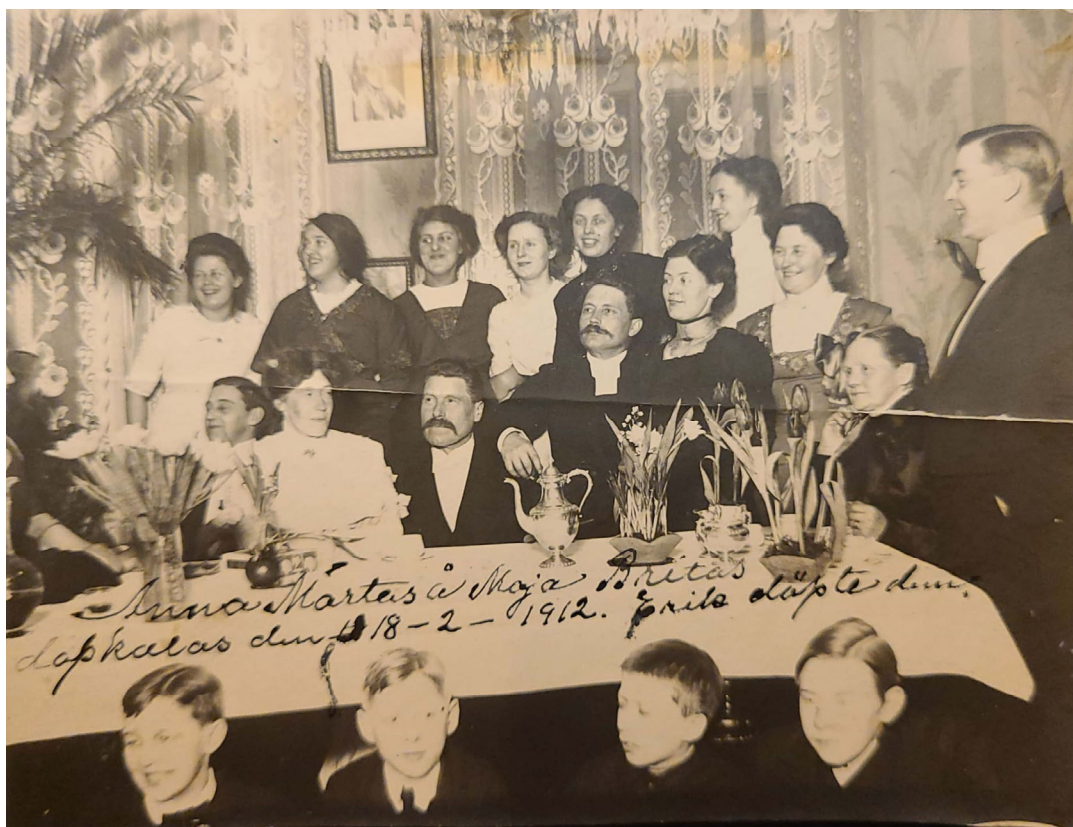 Anna Märtas å Maja Britas
dopkalas den 18-2-1912. Erik döpte dem.